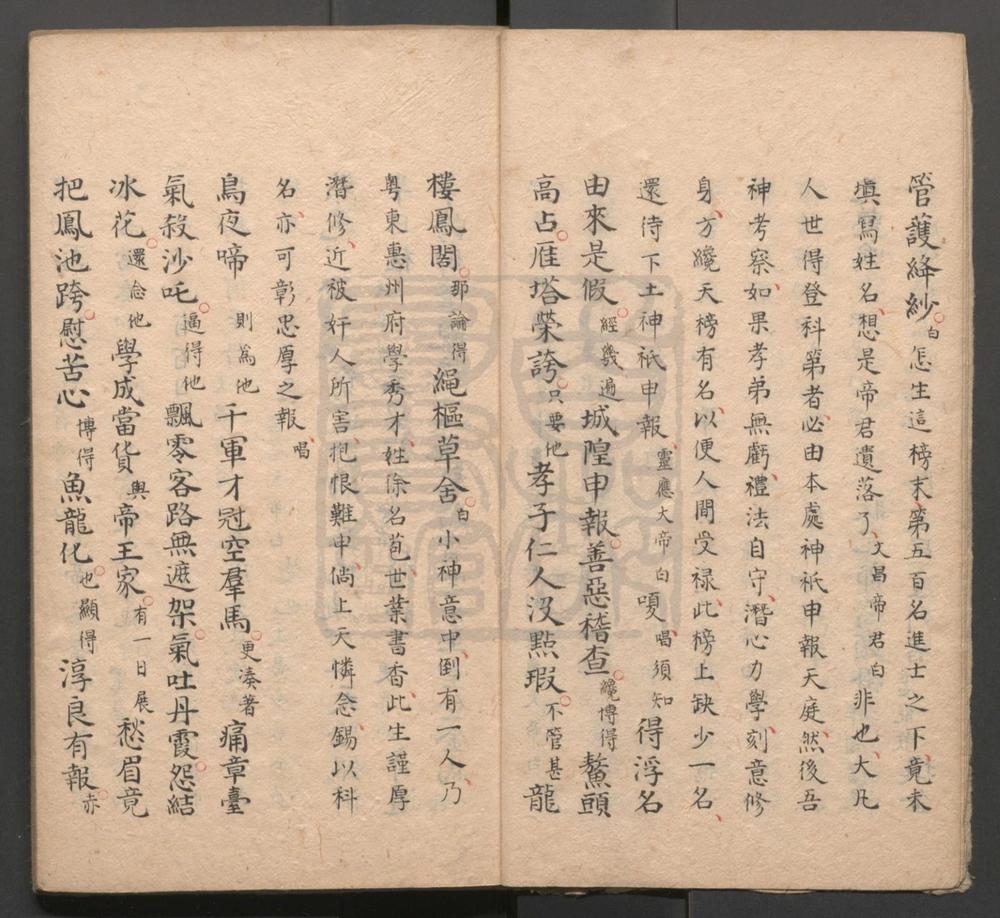 管護絳紗白怎生這榜末第五百名進士之下竟未
塡寫姓名想是帝君遺落了文昌帝君白非也大凡
人世得登科第者必由本處神祇申報天庭然後吾
神考察如果孝弟無虧禮法自守潛心力學刻意修
身方纔天榜有名以便人間受祿此榜上缺少一名
還待下土神祇申報靈應大帝白嗄唱須知得浮名
由來是假經幾遍城隍申報善惡稽查纔博得鰲頭
高占雁塔榮誇只要他孝子仁人沒點瑕不管甚龍
樓鳳閣那論得繩樞草舍白小神意中到有一人乃
粵東惠州府學秀才姓徐名苞世業書香此生謹厚
潛修近被奸人所害抱恨難申倘上天憐念錫以科
名亦可彰忠厚之報唱
鳥夜啼則為他千軍才冠空羣馬更湊著痛章臺
氣殺沙吒逼得他飄零客路無遮架氣吐丹霞怨結
冰花還念他學成當貨與帝王家有一日展愁眉竟
把鳳池跨慰苦心博得魚龍化也顯得淳良有報赤